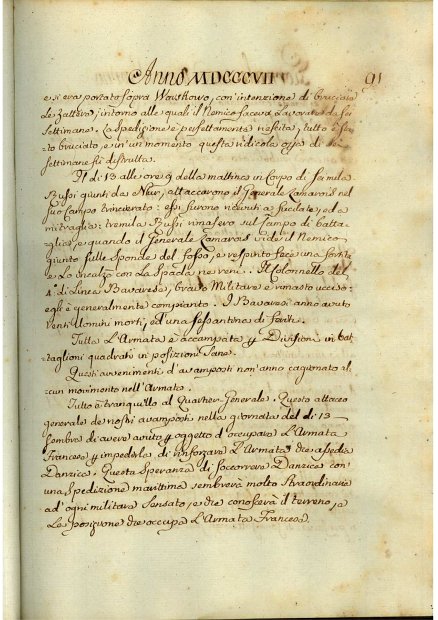 Anno MDCCCVII 91
e si era portato sopra Wouskowo, con' intenzione di bruciare
Le Zattere, intorno alle quali il Nemico faceva Lavorare da sei
settimane. La spedizione è perfettamente riescita, tutto è sta=
to bruciato, e in' un' momento questa ridicola opera di sei
settimane fù distrutta.
Il dì 13 alle ore 9 della mattina un Corpo di sei mila
Russi giunti da Neur, attaccarono il Generale Zamarois nel
suo Campo trincierato: essi furono ricevuti a fucilate, ed a
mitraglia: tremila Russi rimasero sul Campo di batta=
glia, e quando il Generale Zamarois vide il Nemico
giunto sulle sponde del fosso, e respinto fece una sortita
e Lo incalzò con La Spada ne reni. Il Colonnello del
4.° di Linea Bavarese, bravo Militare è rimasto ucciso:
egli è generalmente compianto. I Bavaresi anno avuto
Venti Uomini morti, ed una sessantina di feriti.
Tutta L'Armata è accampata per Divisioni in bat=
taglioni quadrati in posizioni sane.
Questi avvenimenti d'avamposti non' anno cagionato al=
cun movimento nell'Armata.
Tutto è tranquillo al Quartier Generale. Questo attacco
generale de nostri avamposti nella giornata del dì 13
sembra di avere avuto per oggetto d'occupare L'Armata
Francese per impedirle di rinforzare L'Armata che assedia
Danzica. Questa Speranza di soccorrere Danzica con'
una Spedizione marittima sembrerà molto straordinaria
ad' ogni militare Sensato, e che conoscerà il terreno, e
Le posizione che occupa L'Armata Francese